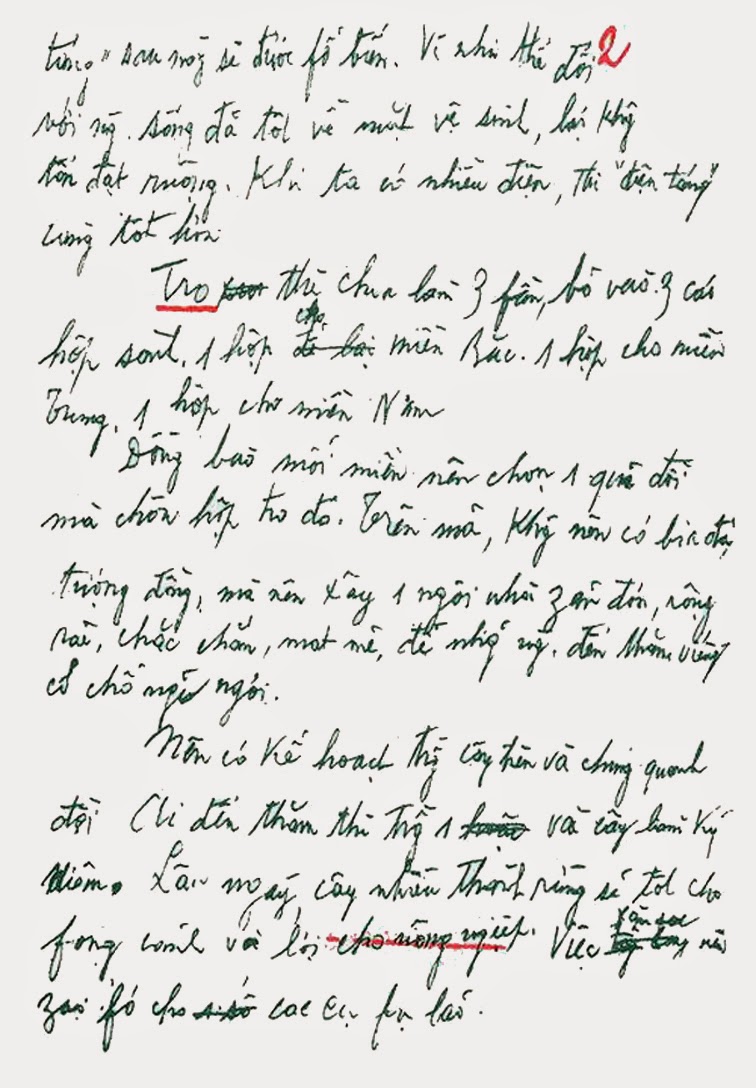 táng" sau nầy sẽ được fổ biến. Vì như thế đối 2
với ng. sống đã tốt về mặt vệ sinh, lại khg
tốn đất ruộng. Khi ta có nhiều điện, thì "điện táng"
càng tốt hơn
Tro thì chia làm 3 fần, bỏ vào 3 cái
hộp sành. 1 hộp cho miền Bắc. 1 hộp cho miền
Trung. 1 hộp cho miền Nam
Đồng bào mỗi miền nên chọn 1 quả đồi
mà chôn hộp tro đó. Trên mả, khg nên có bia đá,
tượng đồng, mà nên xây 1 ngôi nhà zản đơn, rộng
rãi, chắc chắn, mát mẻ, để nhữg ng. đến thăm viếng
có chỗ nghỉ ngơi.
Nên có kế hoạch trg cây trên và chung quanh
đồi Ai đến thăm thì trg 1 vài cây làm kỷ
niệm. Lâu ngày, cây nhiều thành rừng sẽ tốt cho
fong cảnh và lợi cho nông ngiệp. Việc săn sóc nên
zao fó cho các cụ fụ lão.